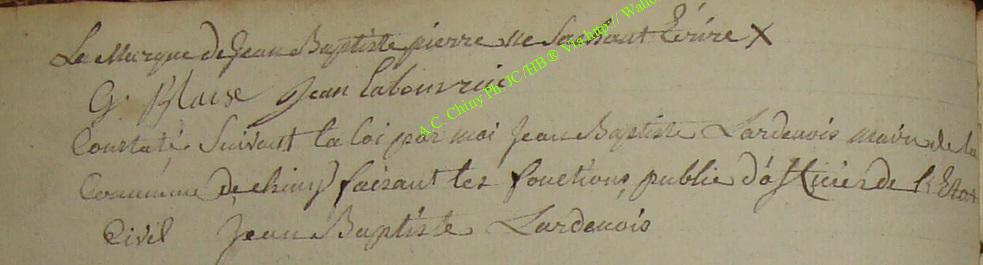 La Marque de Jean Baptiste pierre ne Sachant Ecrire X
G. Blaise Jean labouverie
Constaté Suivant la loi par moi Jean Baptiste Lardenois maire de la
Commune de chiny faisant les fonctions public d'officier de l'Etat
Civil Jean Baptiste Lardenois
A.C. Chiny Ph JC/HB®